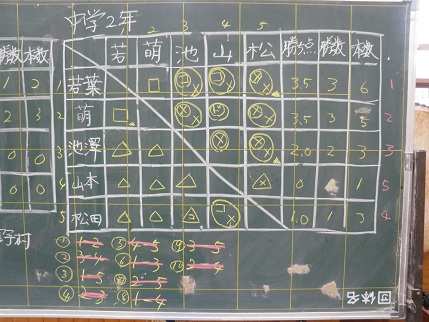 中学2年
勝数 本数 若 萌 池 山 松 勝点 勝数 本数
1 2 1 若葉 3.5 3 6 1
2 3 2 萌 3.5 3 5 2
0 0 3 池澤 2.0 2 3 3
0 0 4 山本 0 1 5
5 松田 1.0 1 3 4
① 1-2 ⑤ 4-5 ⑨ 3-5
② 3-4 ⑥ 1-3 ⑩ 2-4
③ 1-5 ⑦ 2-5
④ 2-3 ⑧ 1-4
団体名